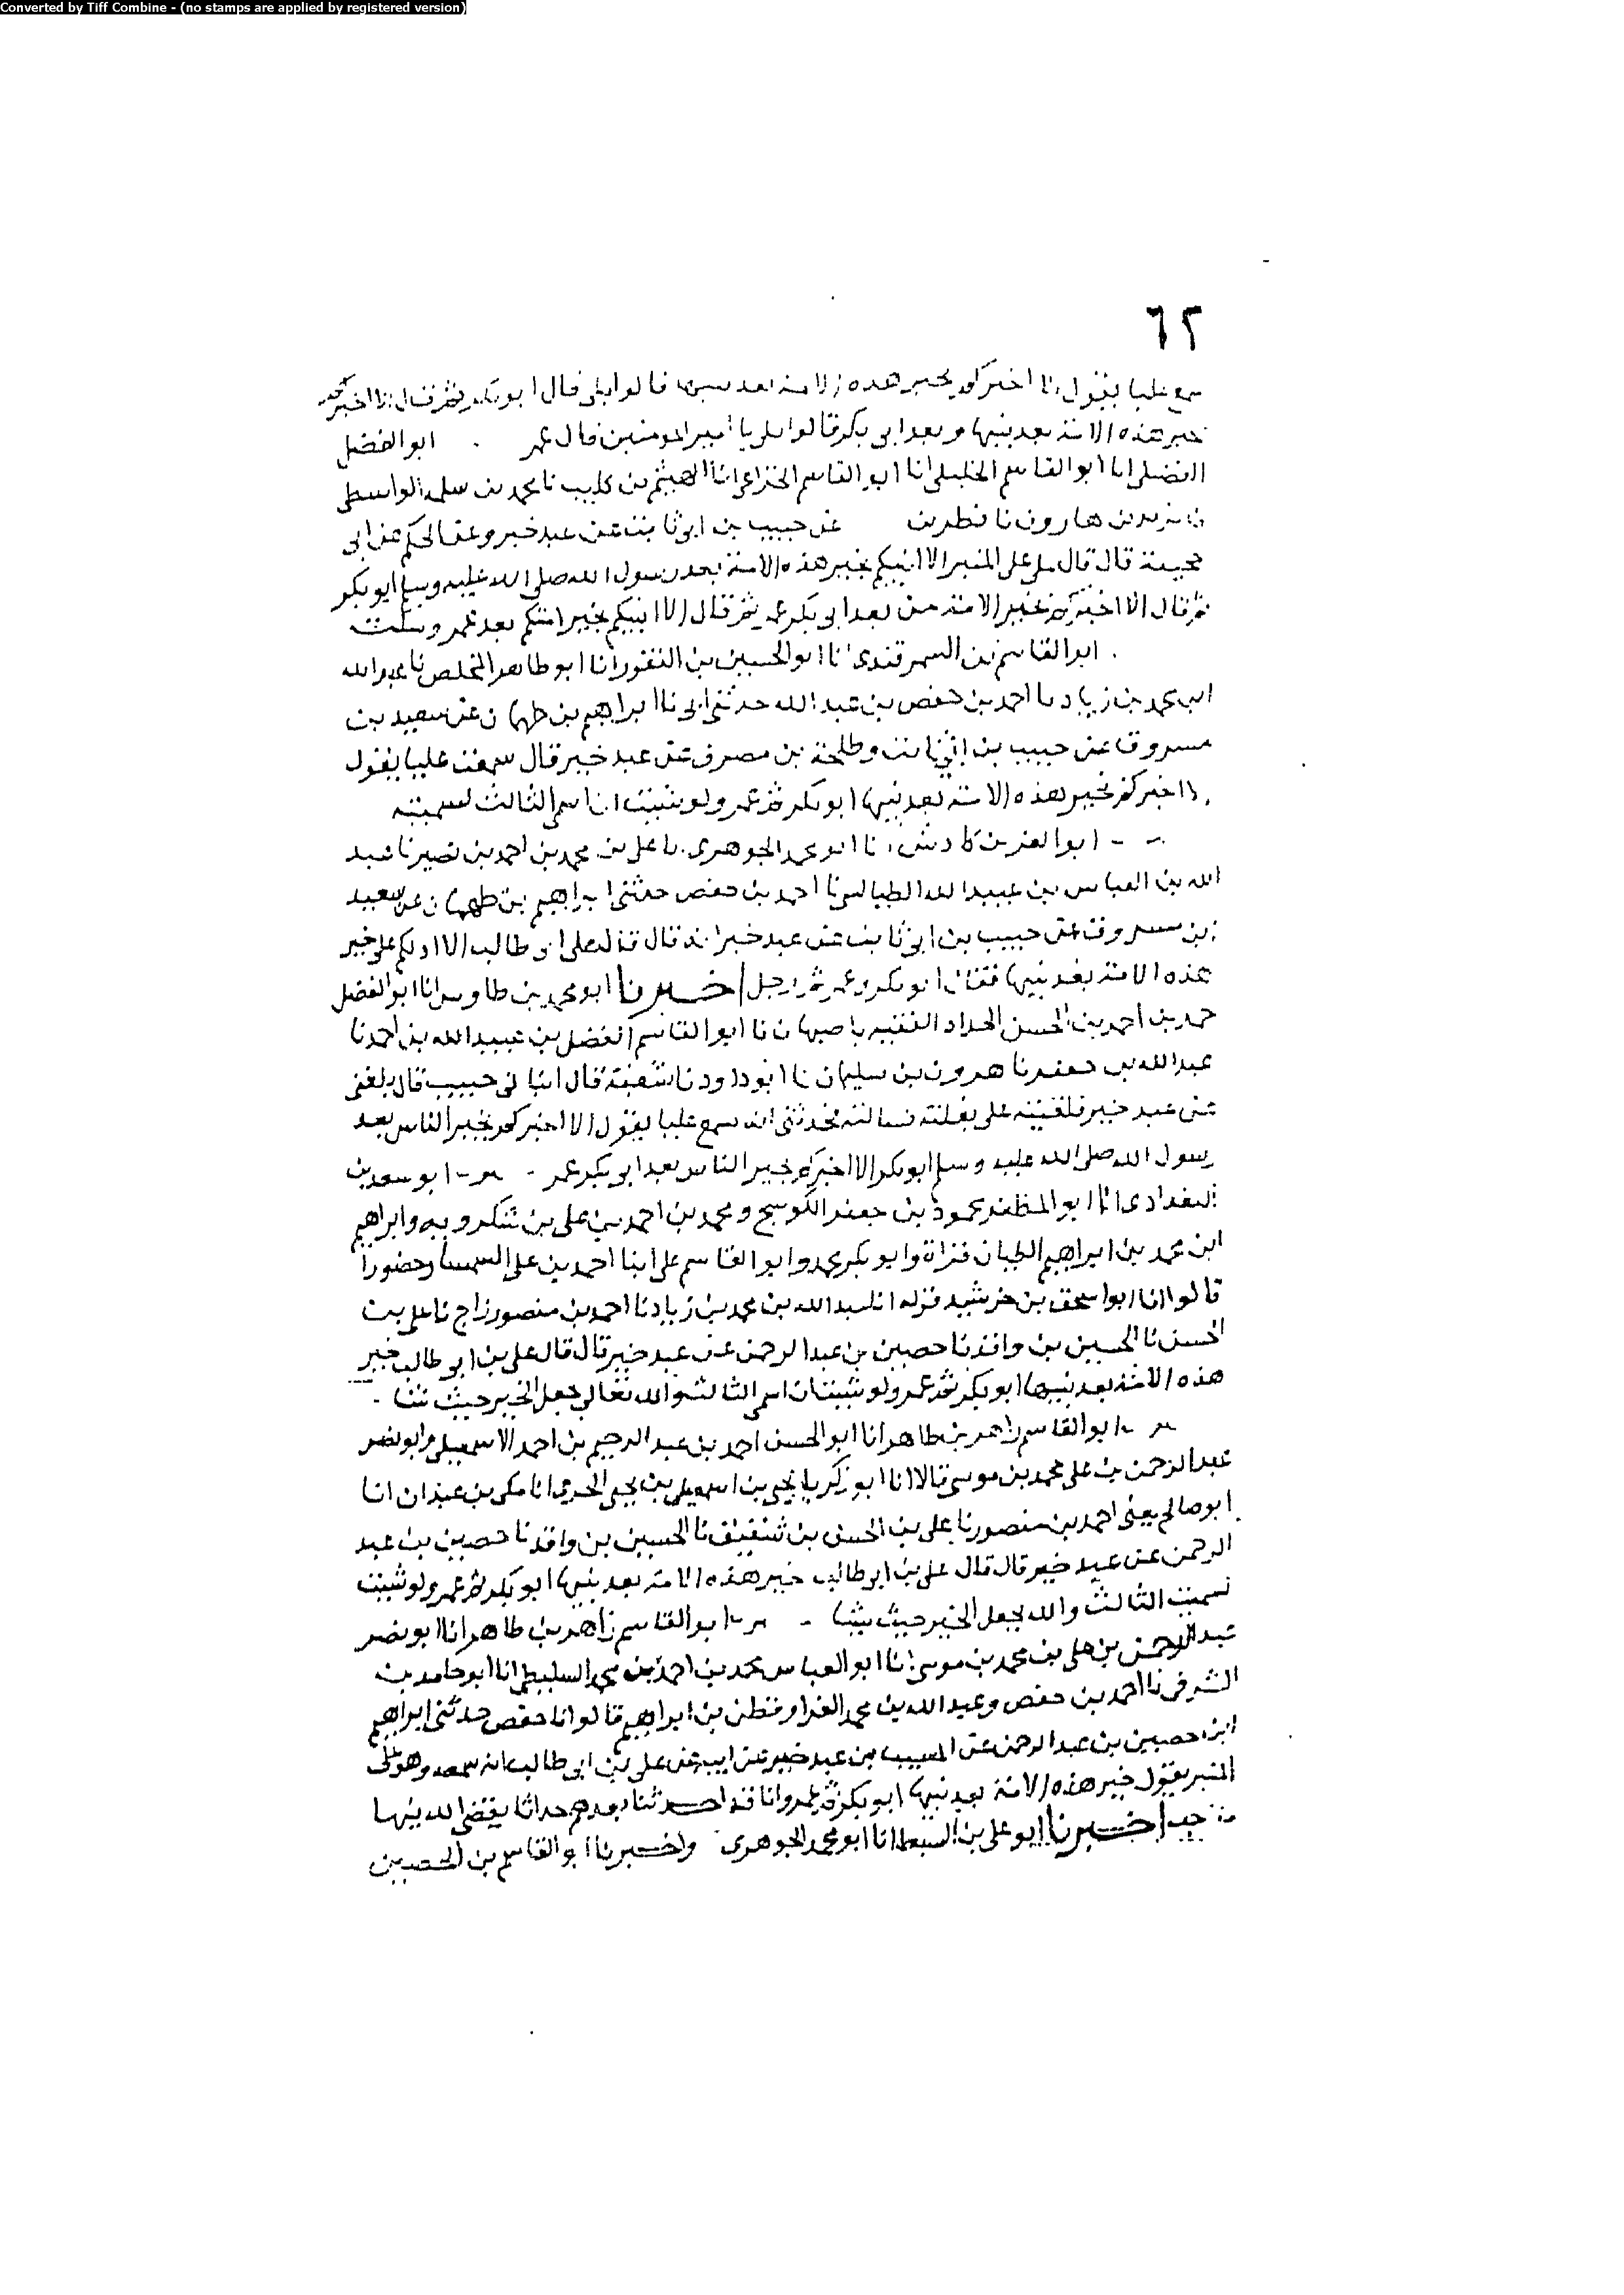 Converted by Tiff Combine - (no stamps are applied by registered version)
٦٢
سمع عليا يقول الا اخبركم بخير هذه الامة بعد نبيها قالوا بلى قال ابو بكر ثم قال الا اخبركم
بخير هذه الامة بعد نبيها وبعد ابى بكر قالوا بلى يا امير المومنين قال عمر ابو الفضل
الفضيلى انا ابو القاسم الخليلى انا ابو القاسم الخزاعى انا الهيثم بن كليب نا محمد بن سلمة الواسطى
نا يزيد بن هارون نا فطر بن عن حبيب بن ابى ثابت عن عبد خير وعن الحكم عن ابى
جحيفة قال قال على على المنبر الا انبيكم بخير هذه الامة بعد رسول الله صلى الله عليه وسلم ابو بكر
ثم قال الا اخبركم بخير الامة من بعد ابى بكر عمر ثم قال الا انبيكم بخير امتكم بعد عمر وسكت
ابو القاسم بن السمرقندى انا ابو الحسين بن النقور انا ابو طاهر المخلص نا عبد الله
ابن محمد بن زياد نا احمد بن حفص بن عبد الله حدثنى ابى نا ابراهيم بن طهمان عن سعيد بن
مسروق عن حبيب بن ابى ثابت وطلحة بن مصرف عن عبد خير قال سمعت عليا يقول
الا اخبركم بخير هذه الامة بعد نبيها ابو بكر ثم عمر ولو شيت ان اسمى الثالث لسميته
ابو العز بن كادش انا ابو محمد الجوهرى نا على بن محمد بن احمد بن نصير نا عبد
الله بن العباس بن عبيد الله الطيالسى نا احمد بن حفص حدثنى ابراهيم بن طهمان عن سعيد
ابن مسروق عن حبيب بن ابى ثابت عن عبد خير انه قال قال على بن ابى طالب الا ادلكم على خير
هذه الامة بعد نبيها فقال ابو بكر وعمر ثم رجل اخبرنا ابو محمد بن طاوس انا ابو الفضل
حمد بن احمد بن الحسن الحداد الفقيه باصبهان نا ابو القاسم الفضل بن عبيد الله بن احمد نا
عبد الله بن جعفر نا هرون بن سليمان نا ابو داود نا شعبة قال انبانى حبيب قال بلغنى
عن عبد خير فلقيته على بغلته فسالته فحدثنى انه سمع عليا يقول الا اخبركم بخير الناس بعد
رسول الله صلى الله عليه وسلم ابو بكر الا اخبركم بخير الناس بعد ابى بكر عمر ابو سعد بن
البغدادى انا ابو المظفر محمود بن جعفر الكوسج ومحمد بن احمد بن على بن شكرويه وابراهيم
ابن محمد بن ابراهيم الطيان قراة وابو بكر محمد وابو القاسم على ابنا احمد بن على السمسار حضورا
قالوا انا ابو اسحق بن خرشيد قوله انا عبد الله بن محمد بن زياد نا احمد بن منصور زاج نا على بن
الحسن نا الحسين بن واقد نا حصين بن عبد الرحمن عن عبد خير قال قال على بن ابى طالب خير
هذه الامة بعد نبيها ابو بكر ثم عمر ولو شيت ان اسمى الثالث والله تعالى جعل الخير حيث شا
ابو القاسم زاهر بن طاهر انا ابو الحسن احمد بن عبد الرحيم بن احمد الاسمعيلى وابو نصر
عبد الرحمن بن على محمد بن موسى قالا انا ابو زكريا يحيى بن اسمعيل بن يحيى الحربى انا مكى بن عبدان انا
ابو صالح يعنى احمد بن منصور نا على بن الحسن بن شقيق نا الحسين بن واقد نا حصين بن عبد
الرحمن عن عبد خير قال قال على بن ابو طالب خير هذه الامة بعد نبيها ابو بكر ثم عمر ولو شيت
لسميت الثالث والله يجعل الخير حيث يشا ابو القاسم زاهر بن طاهر انا ابو نصر
عبد الرحمن بن على بن محمد بن موسى انا ابو العباس محمد بن احمد بن محمد السليطى انا ابو حامد بن
الشرقى نا احمد بن حفص وعبد الله بن محمد الفرا وقطن بن ابراهيم قالوا نا حفص حدثنى ابراهيم
عن حصين بن عبد الرحمن عن المسيب بن عبد خير عن ابيه عن على بن ابى طالب انه سمعه وهو على
المنبر يقول خير هذه الامة بعد نبيها ابو بكر ثم عمر وانا قد احدثنا بعدهم احداثا يقضى الله فيها
ما احب اخبرنا ابو على بن السبط انا ابو محمد الجوهرى واخبرنا ابو القاسم بن الحصين